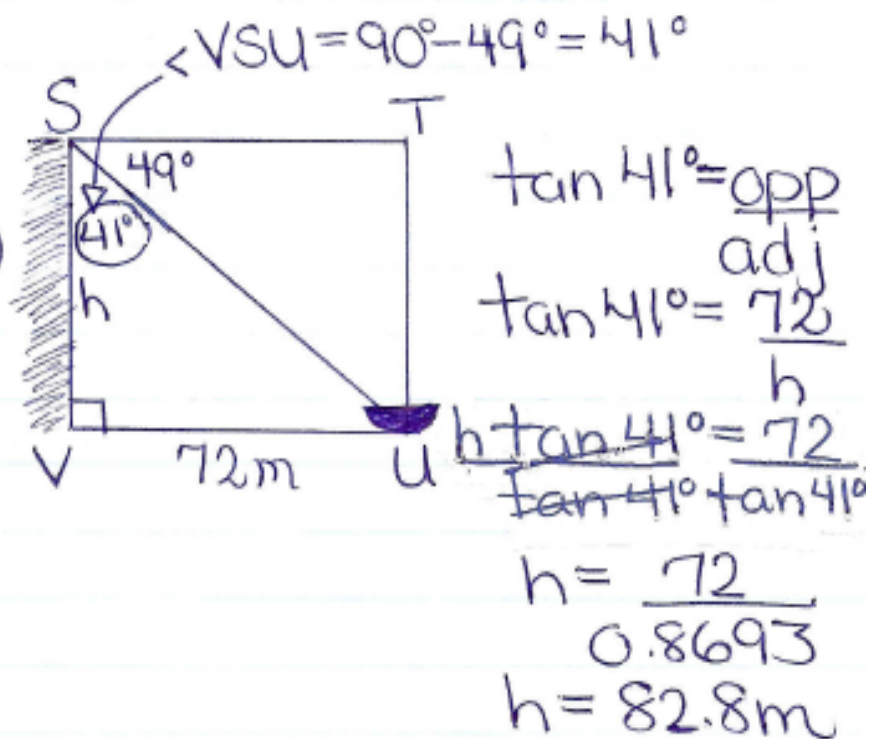 <VSU=90°-49°=41°
S T
49°
41°
h
V 72m U
tan 41°=opp
adj
tan 41°= 72
h
h tan 41°= 72
tan 41° tan 41°
h= 72
0.8693
h= 82.8m